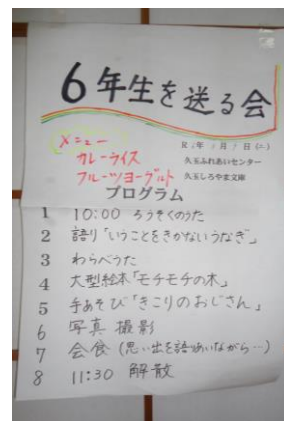 6年生を送る会
メニュー
カレーライス
フルーツヨーグルト
久玉ふれあいセンター
久玉しろやま文庫
プログラム
1 10:00 ろうそくのうた
2 語り「いうことをきかないうなぎ」
3 わらべうた
4 大型絵本「モチモチの木」
5 手あそび「きこりのおじさん」
6 写真撮影
7 会食(思い出を語りあいながら…)
8 11:30 解散